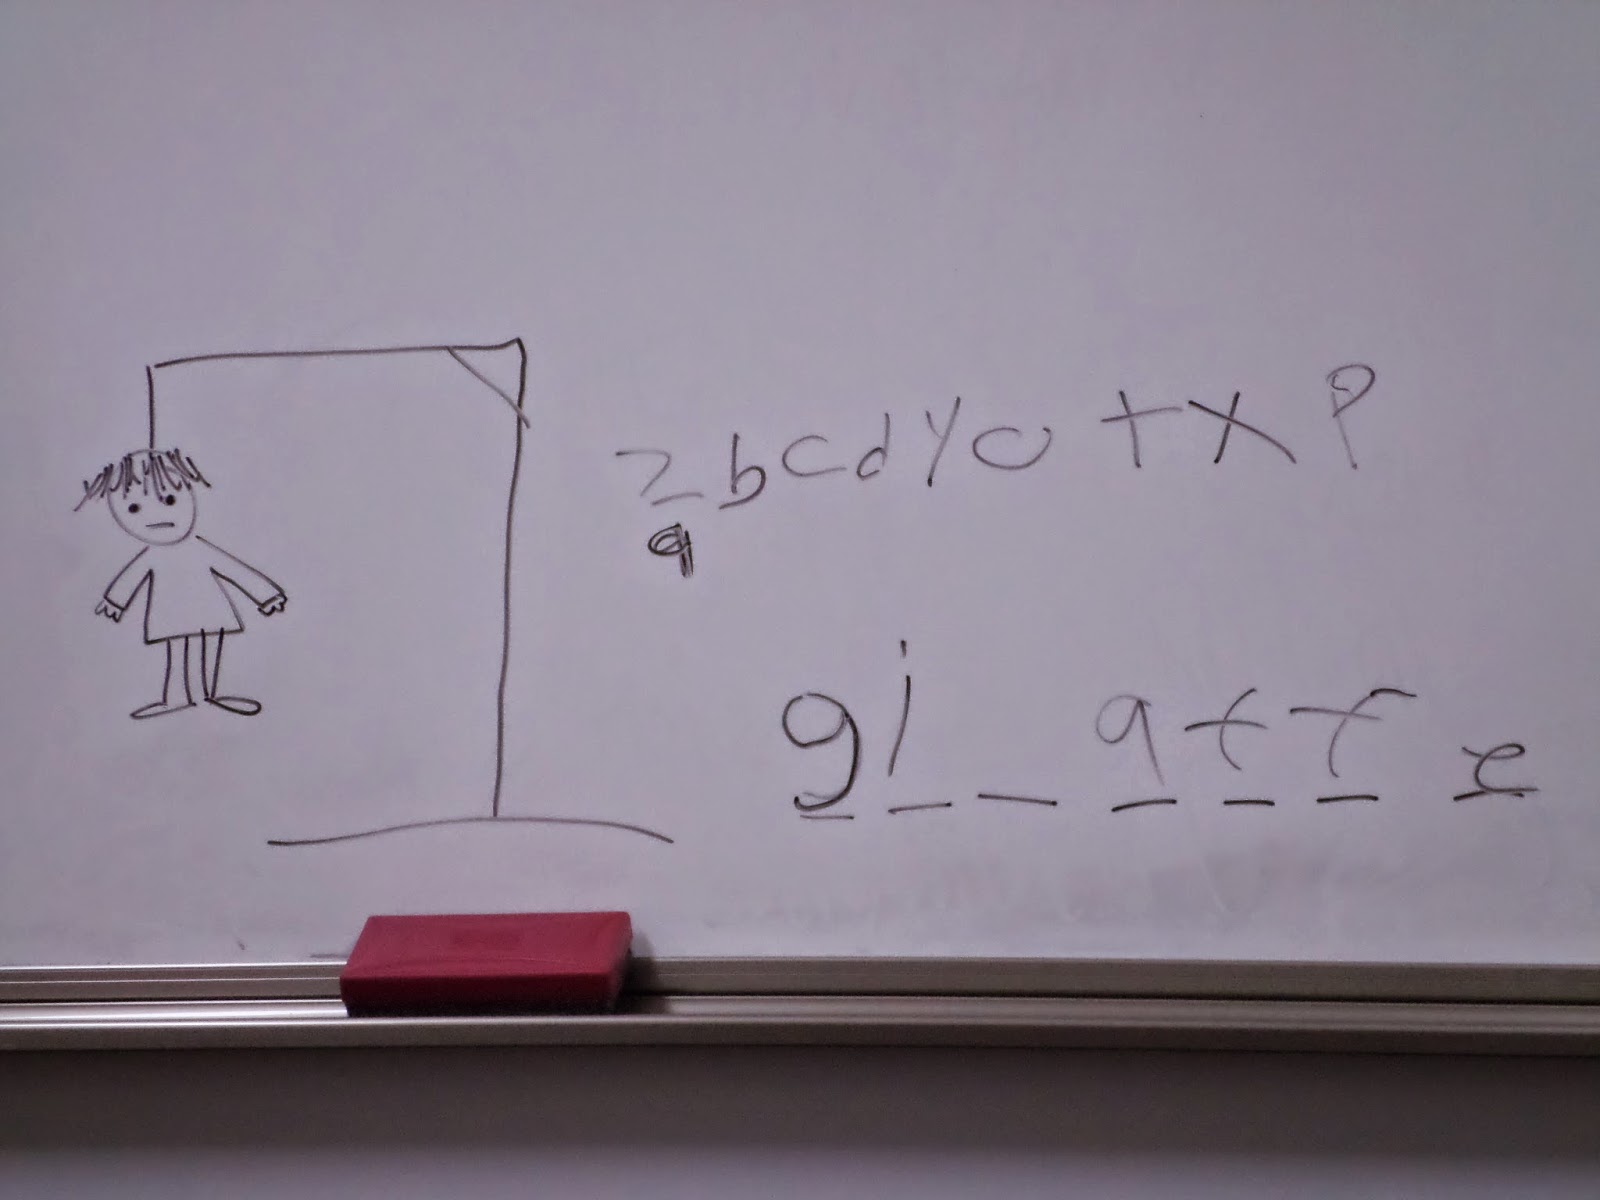 z b c d y o t x p
q
g i _ a f f e